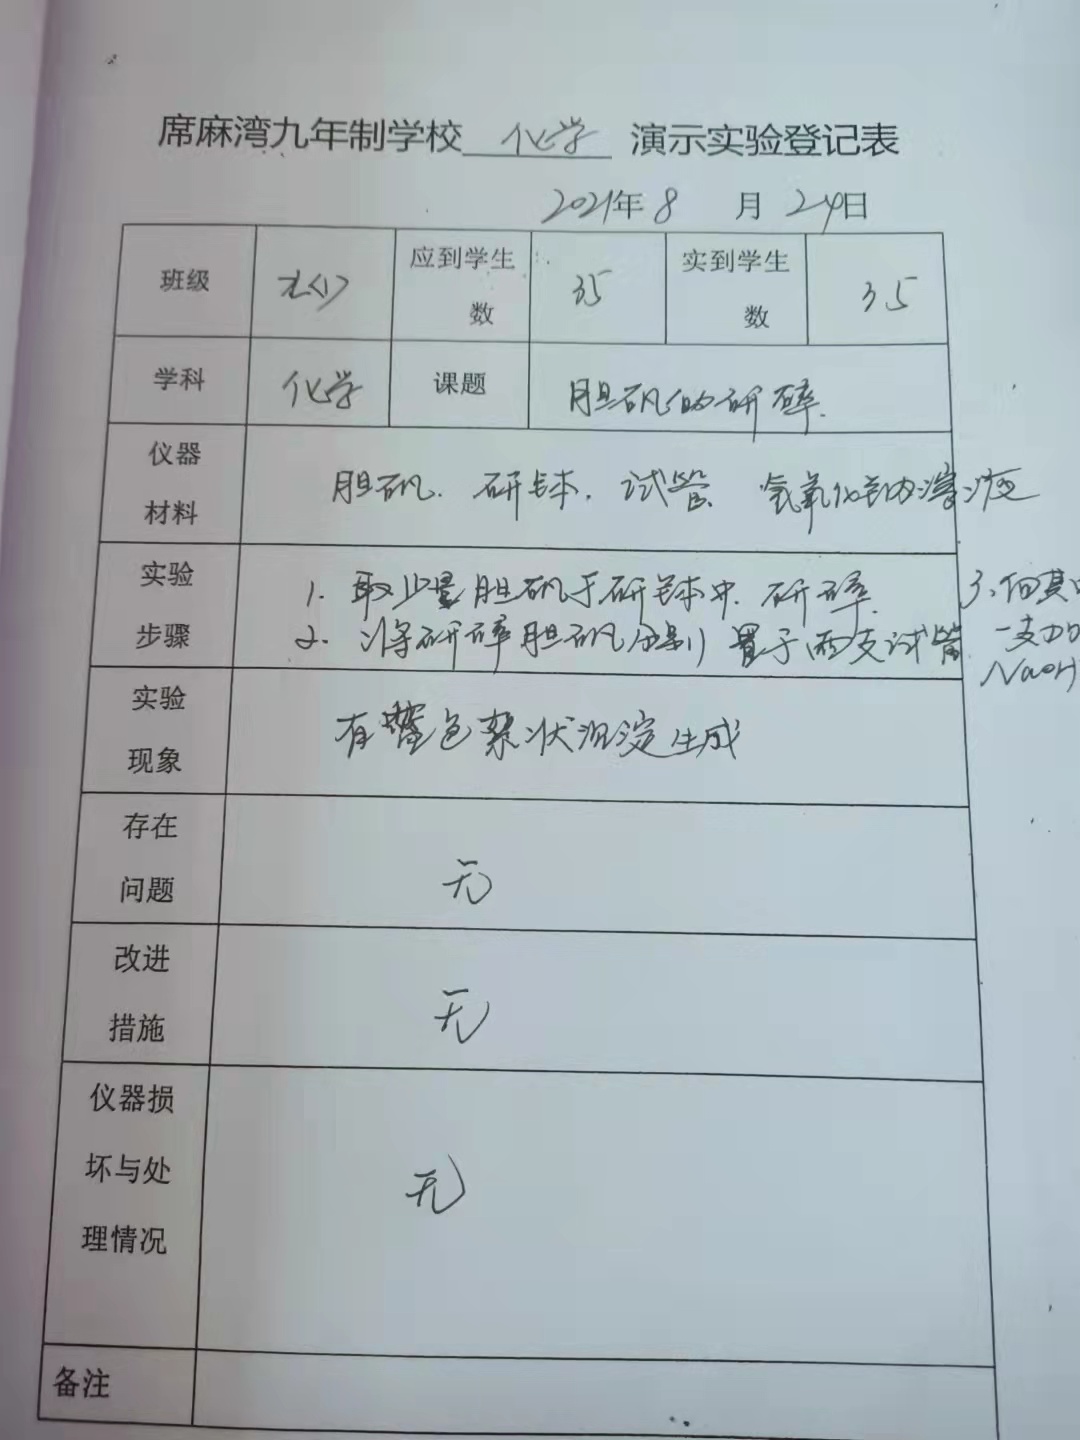 席麻湾九年制学校 化学 演示实验登记表
2021年 8 月 24日
班级 九(1) 应到学生数 35 实到学生数 35
学科 化学 课题 胆矾的研碎.
仪器材料 胆矾. 研钵. 试管. 氢氧化钠溶液
实验步骤 1. 取少量胆矾于研钵中. 研碎.
2. 将研碎胆矾分别置于两支试管
3. 向其中
一支加
NaOH
实验现象 有蓝色絮状沉淀生成
存在问题 无
改进措施 无
仪器损坏与处理情况 无
备注